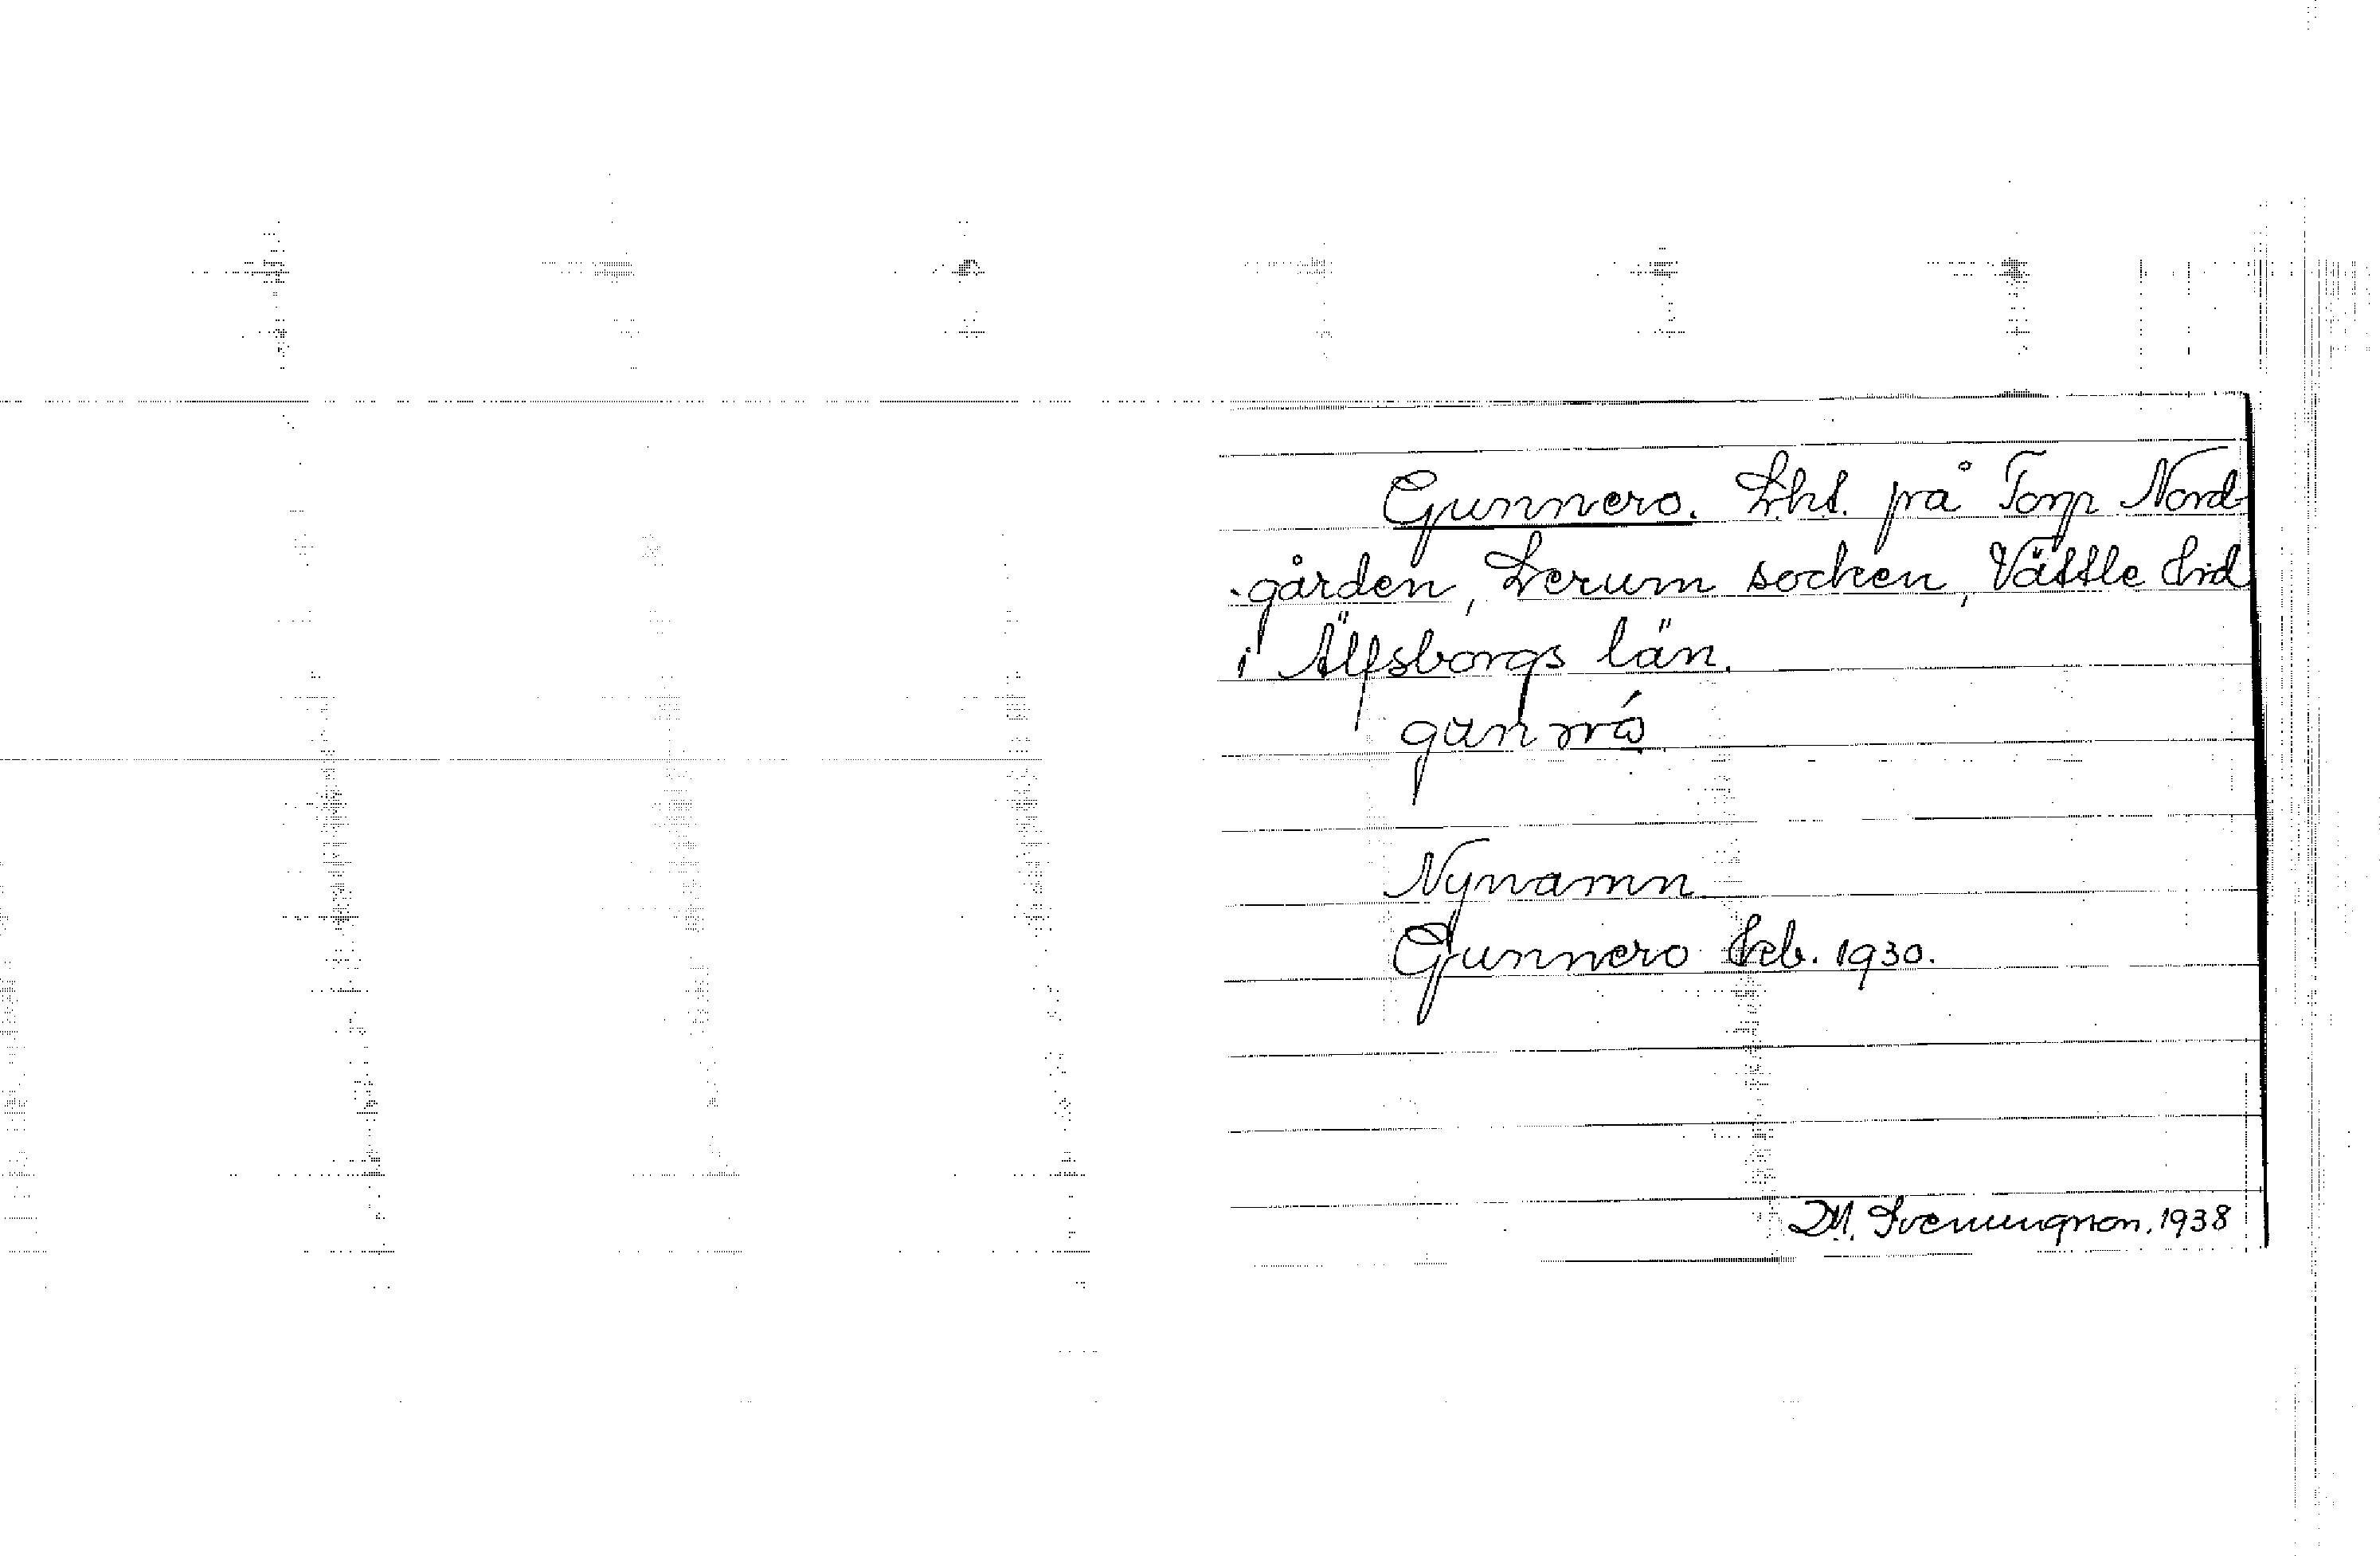 Gunnero. Lht. på Torp Nord
gården, Lerum socken, Vättle hd
i Älfsborgs län.
Nynamn
Gunnero Jrb. 1930.
M. Svenungson. 1938